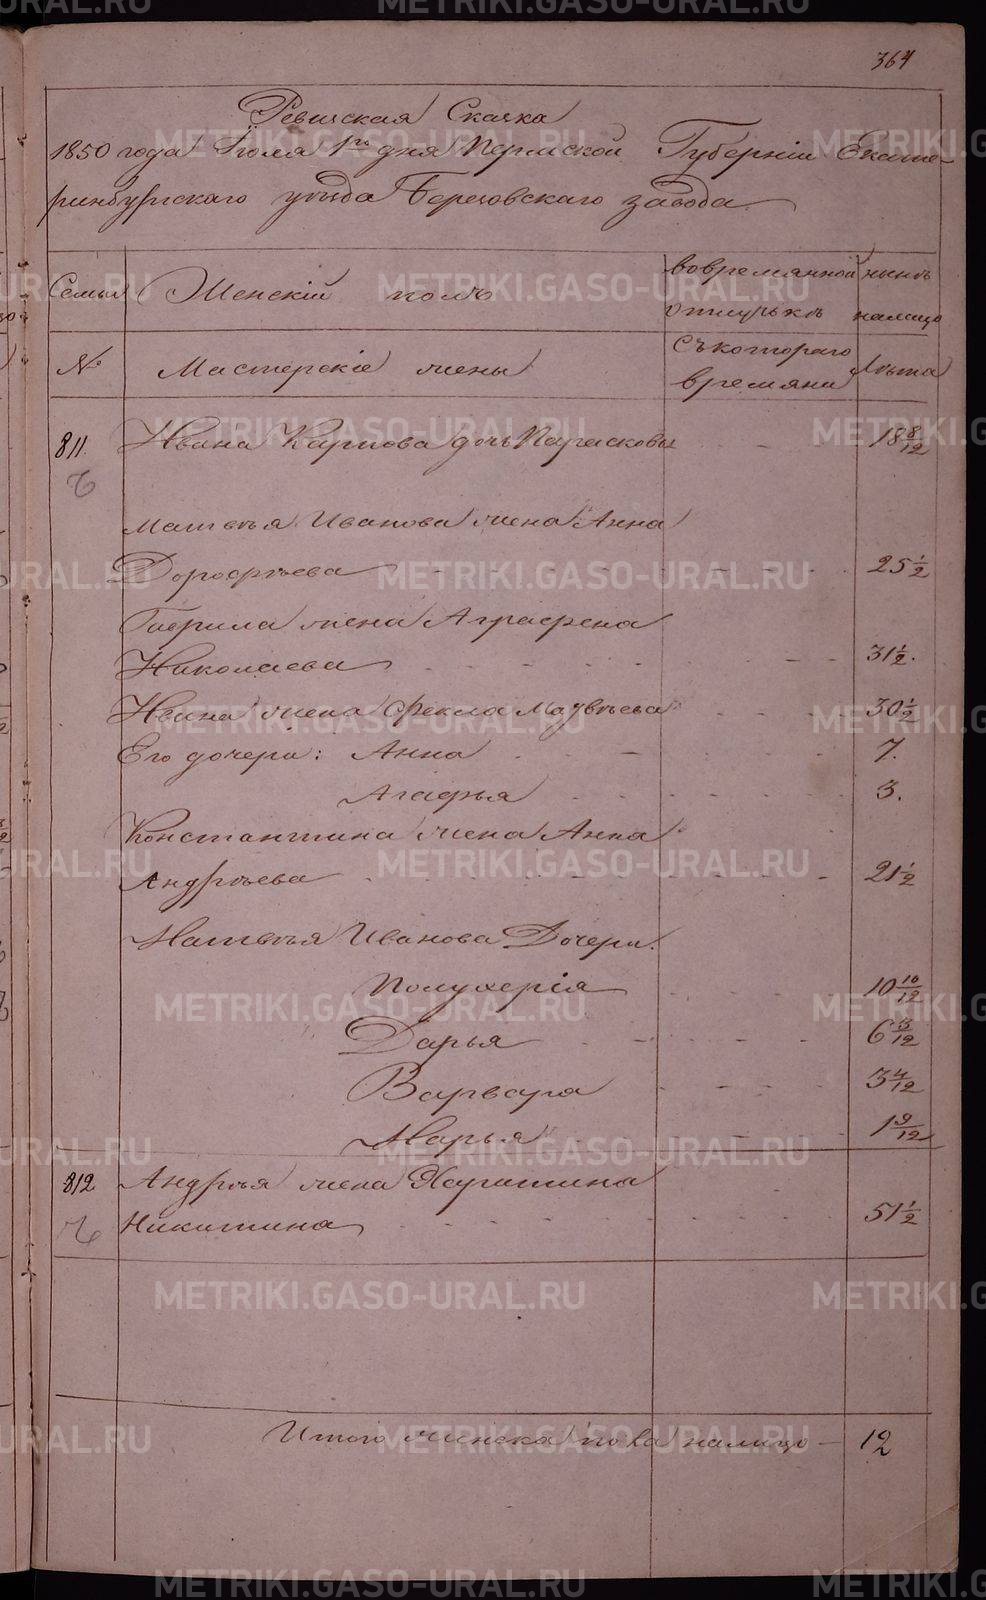 364
Ревижская Сказка
1850 года Іюля 1го дня Пермской Губерніи Екате-
ринбургскаго уѣзда Березовскаго завода
Семья Женскій полъ вовремянной нынѣ
отлучькѣ налицо
№ Мастерскіе жены съкотораго Лѣта
времяни
811. Ивана Карпова дочь Парасковья 18 8/12
Матвѣя Иванова жена Анна
Дорофѣева 25 1/2
Гаврила жена Аграфена
Николаева 31 1/2.
Ивана жена Фекла Мадвѣева 30 1/2
Его дочери: Анна 7.
Агафья 3.
Константина жена Анна
Андрѣева 21 1/2
Матвѣя Иванова Дочери.
Полухерія 10 10/12
Дарья 6 5/12
Варвара 3 4/12
Марья 1 9/12
812 Андрѣя жена Харитина
Никитина 51 1/2
Итого женска пола налицо 12
METRIKI.GASO-URAL.RU